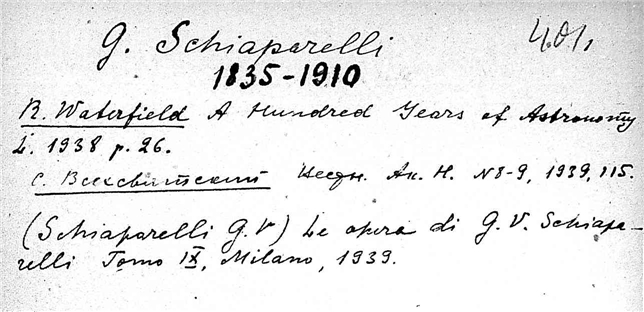 G. Schiaparelli
1835-1910
R. Waterfield A Hundred Years of Astronomy
L. 1938 p. 26.
С. Всехсвятский Ак. Н. N 8-9, 1939, 115.
(Schiaparelli G. V) Le opera di G. V. Schiapa-
relli Tomo IX, Milano, 1939.